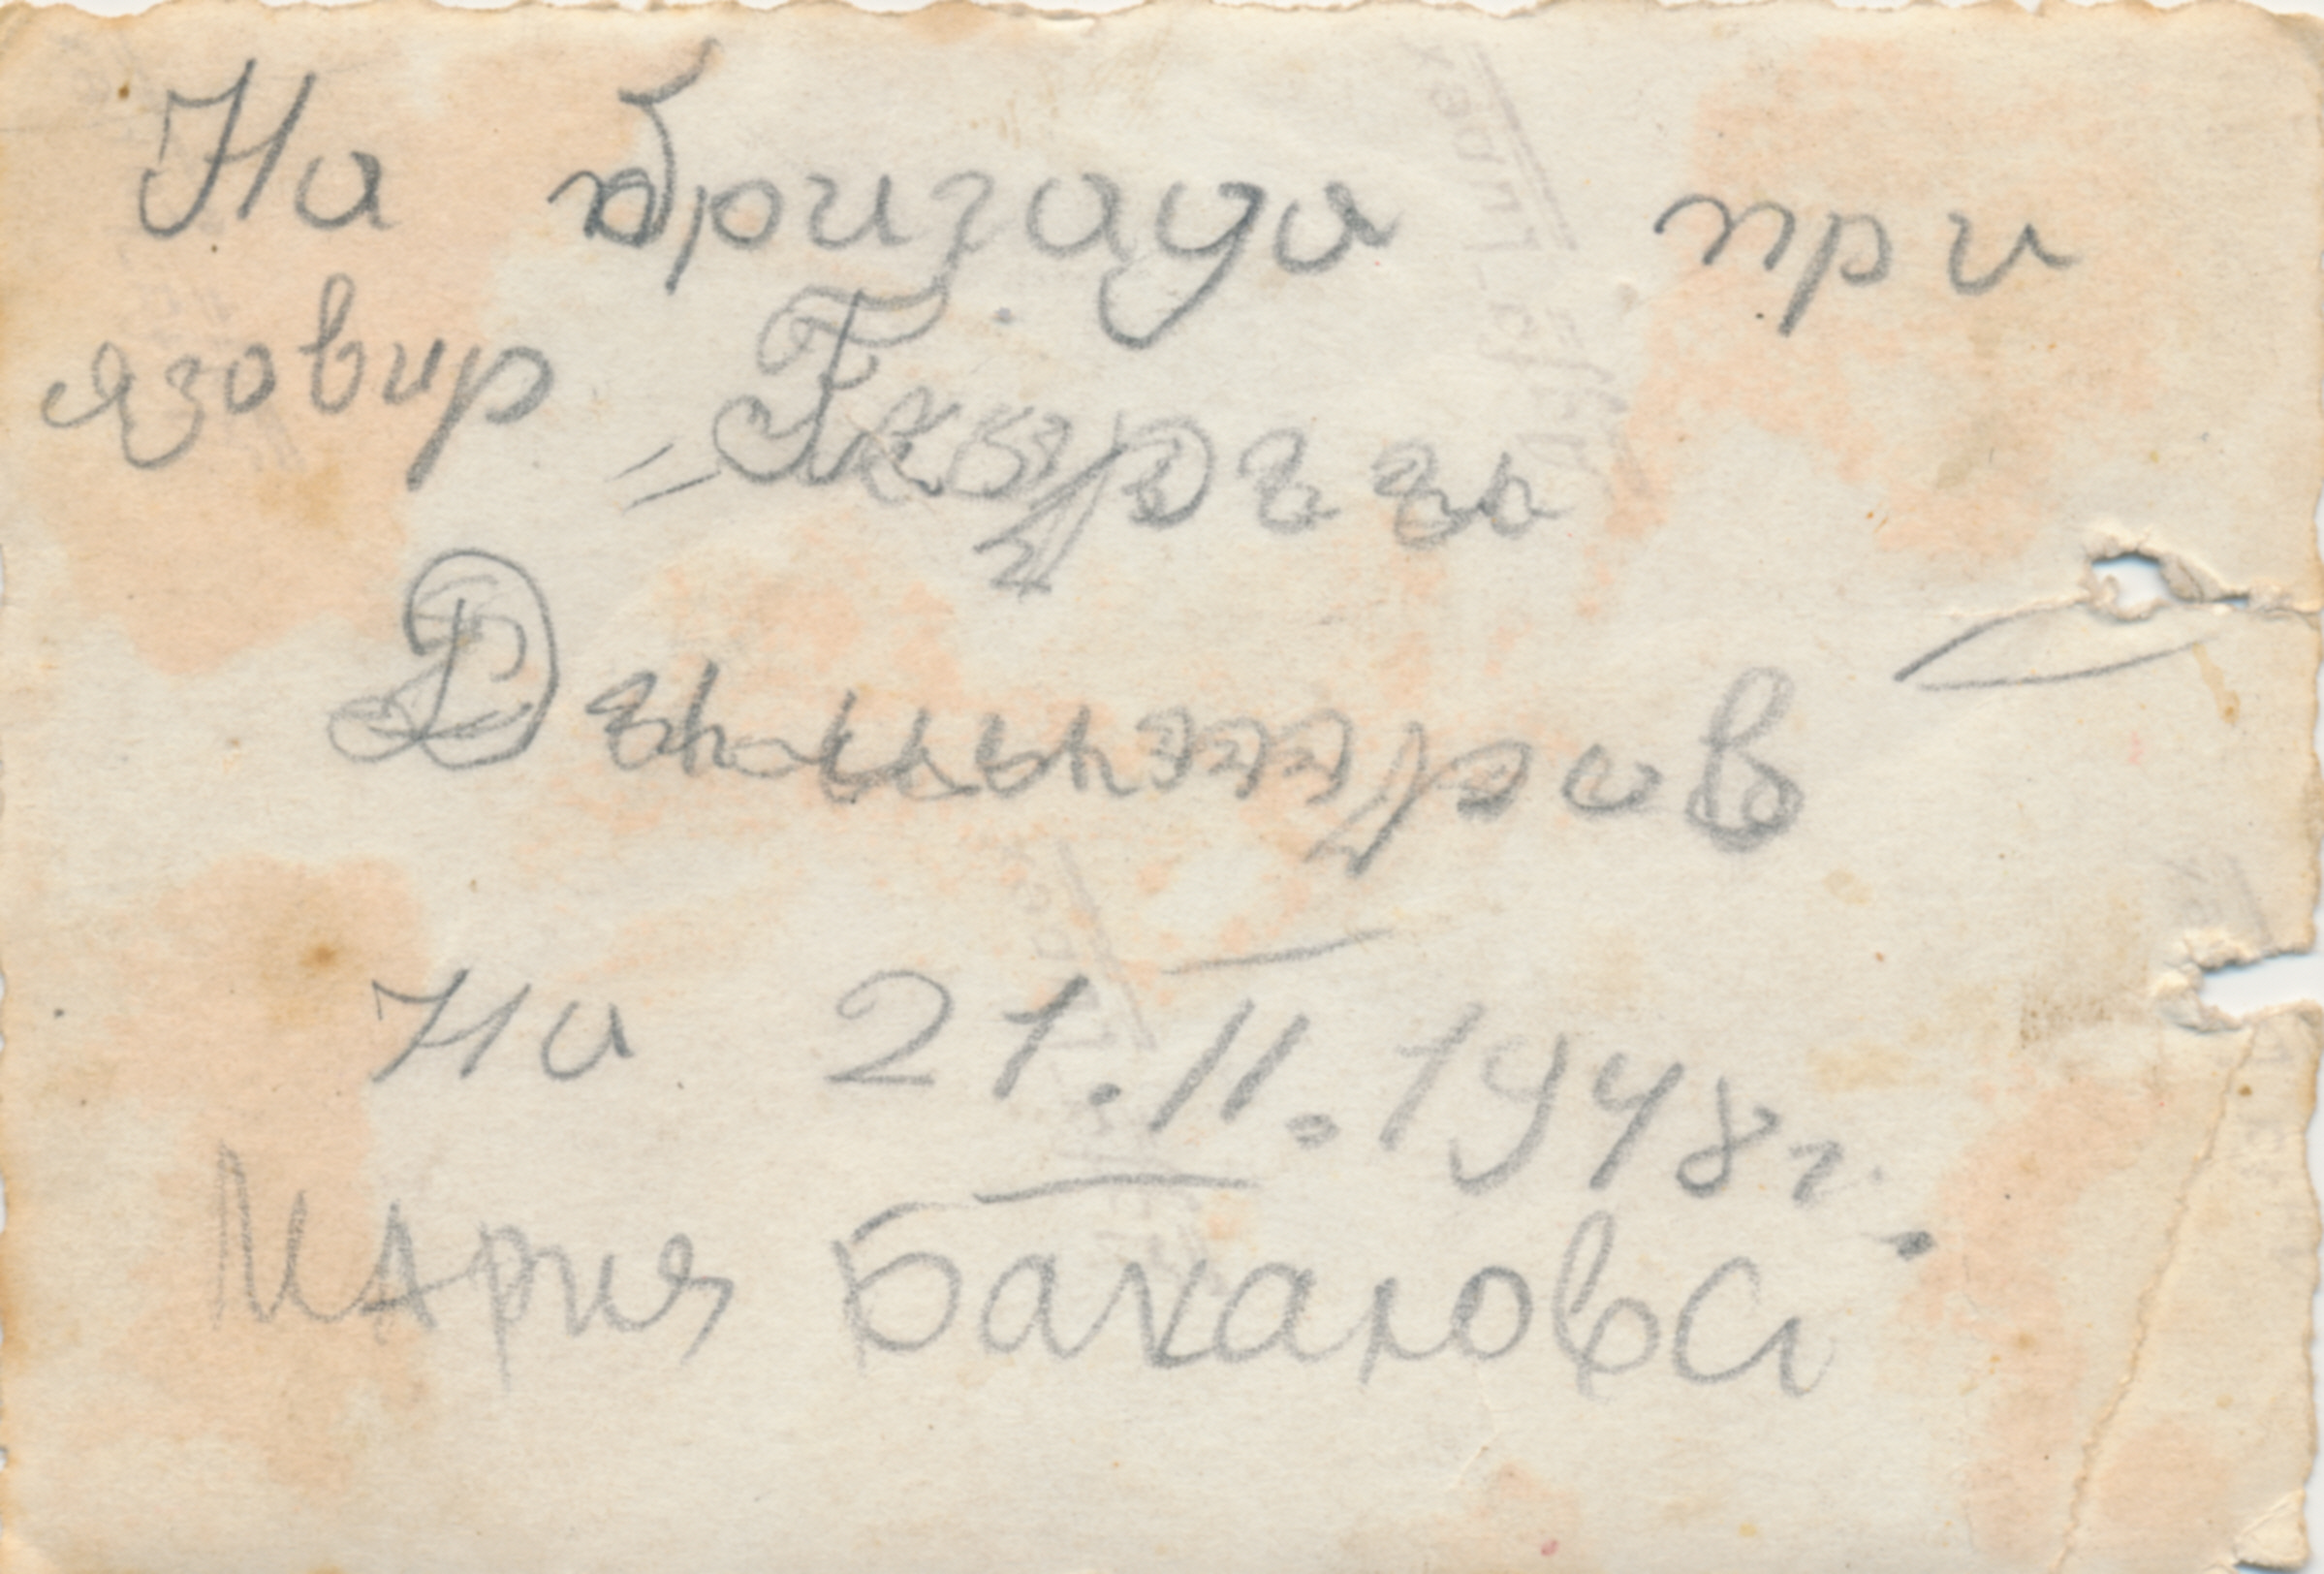 На бригада при
язовир "Георги
Димитров"
На 21.II.1948г.
Мария Бакалова